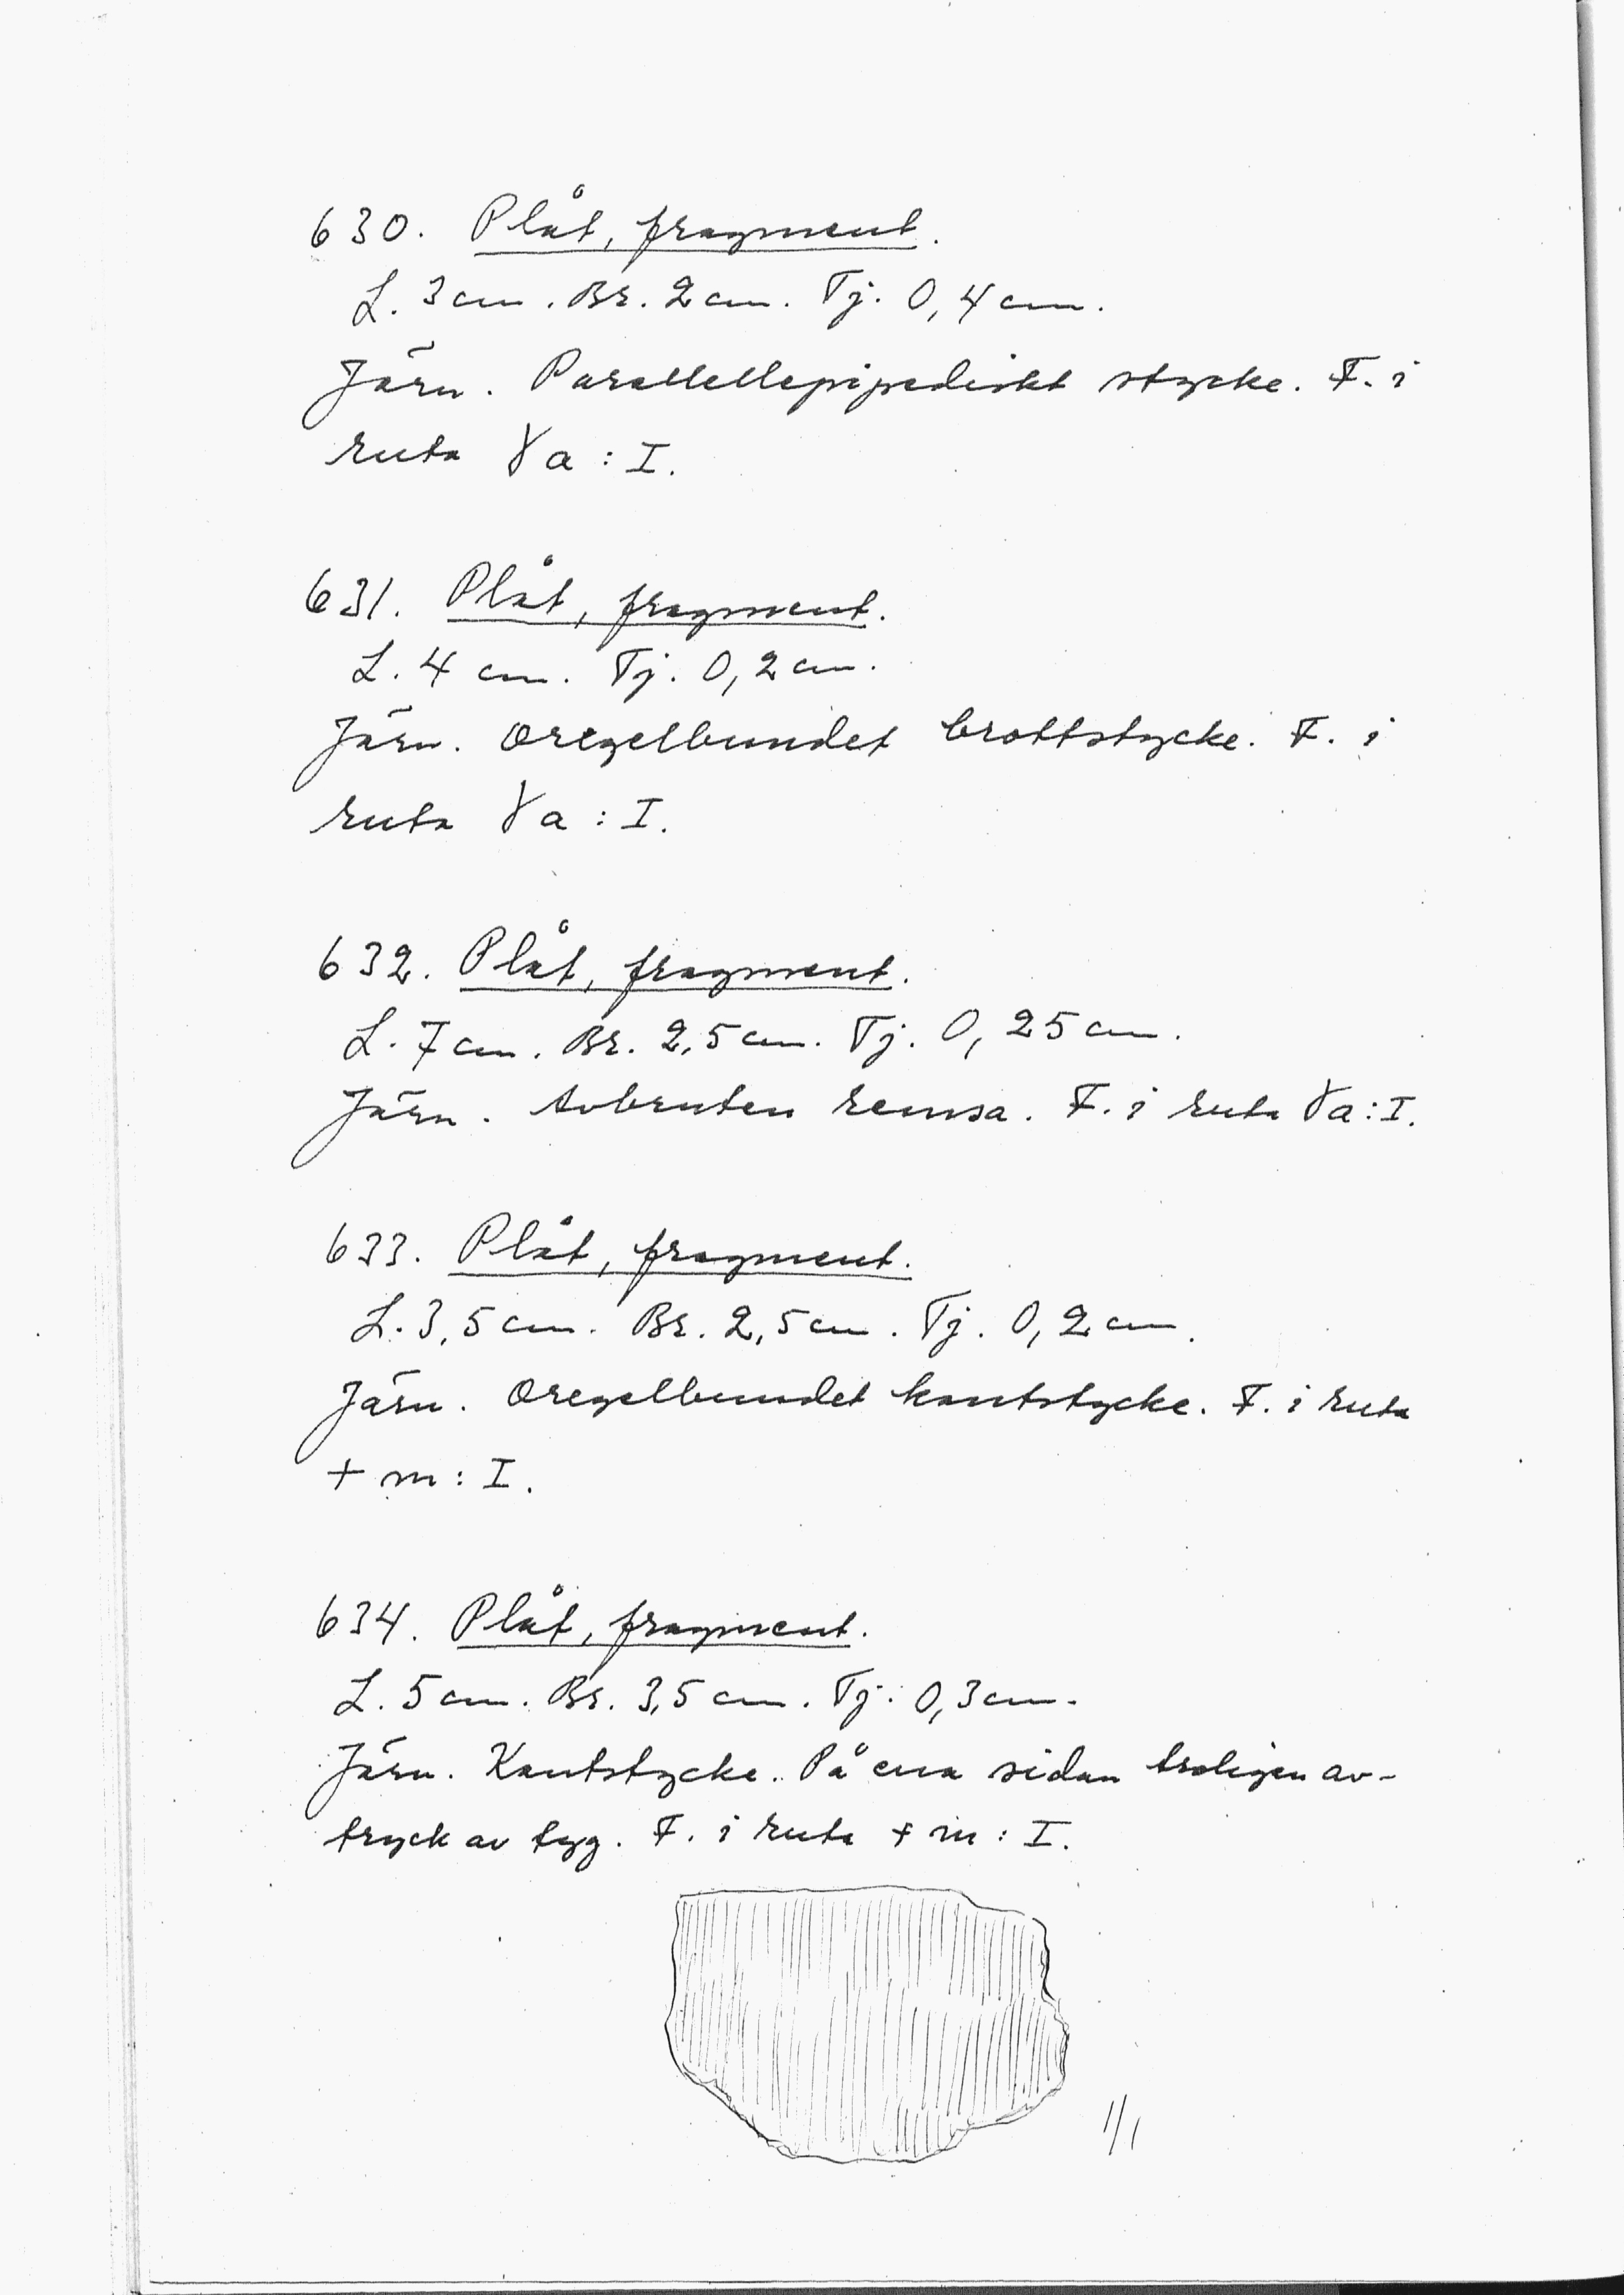 630. Plåt, fragment.
L. 3 cm. Br. 2 cm. Tj. 0,4 cm.
Järn. Parallellepipediskt stycke. F. i
ruta γa : I.
631. Plåt, fragment.
L. 4 cm. Tj. 0,2 cm.
Järn. Oregelbundet brottstycke. F. i
ruta γa : I.
632. Plåt, fragment.
L. 7 cm. Br. 2,5 cm. Tj. 0,25 cm.
Järn. Avbruten remsa. F. i ruta γa : I.
633. Plåt, fragment.
L. 3,5 cm. Br. 2,5 cm. Tj. 0,2 cm.
Järn. Oregelbundet kantstycke. F. i ruta
+ m : I.
634. Plåt, fragment.
L. 5 cm. Br. 3,5 cm. Tj. 0,3 cm.
Järn. Kantstycke. På ena sidan troligen av-
tryck av tyg. F. i ruta + m : I.
1/1